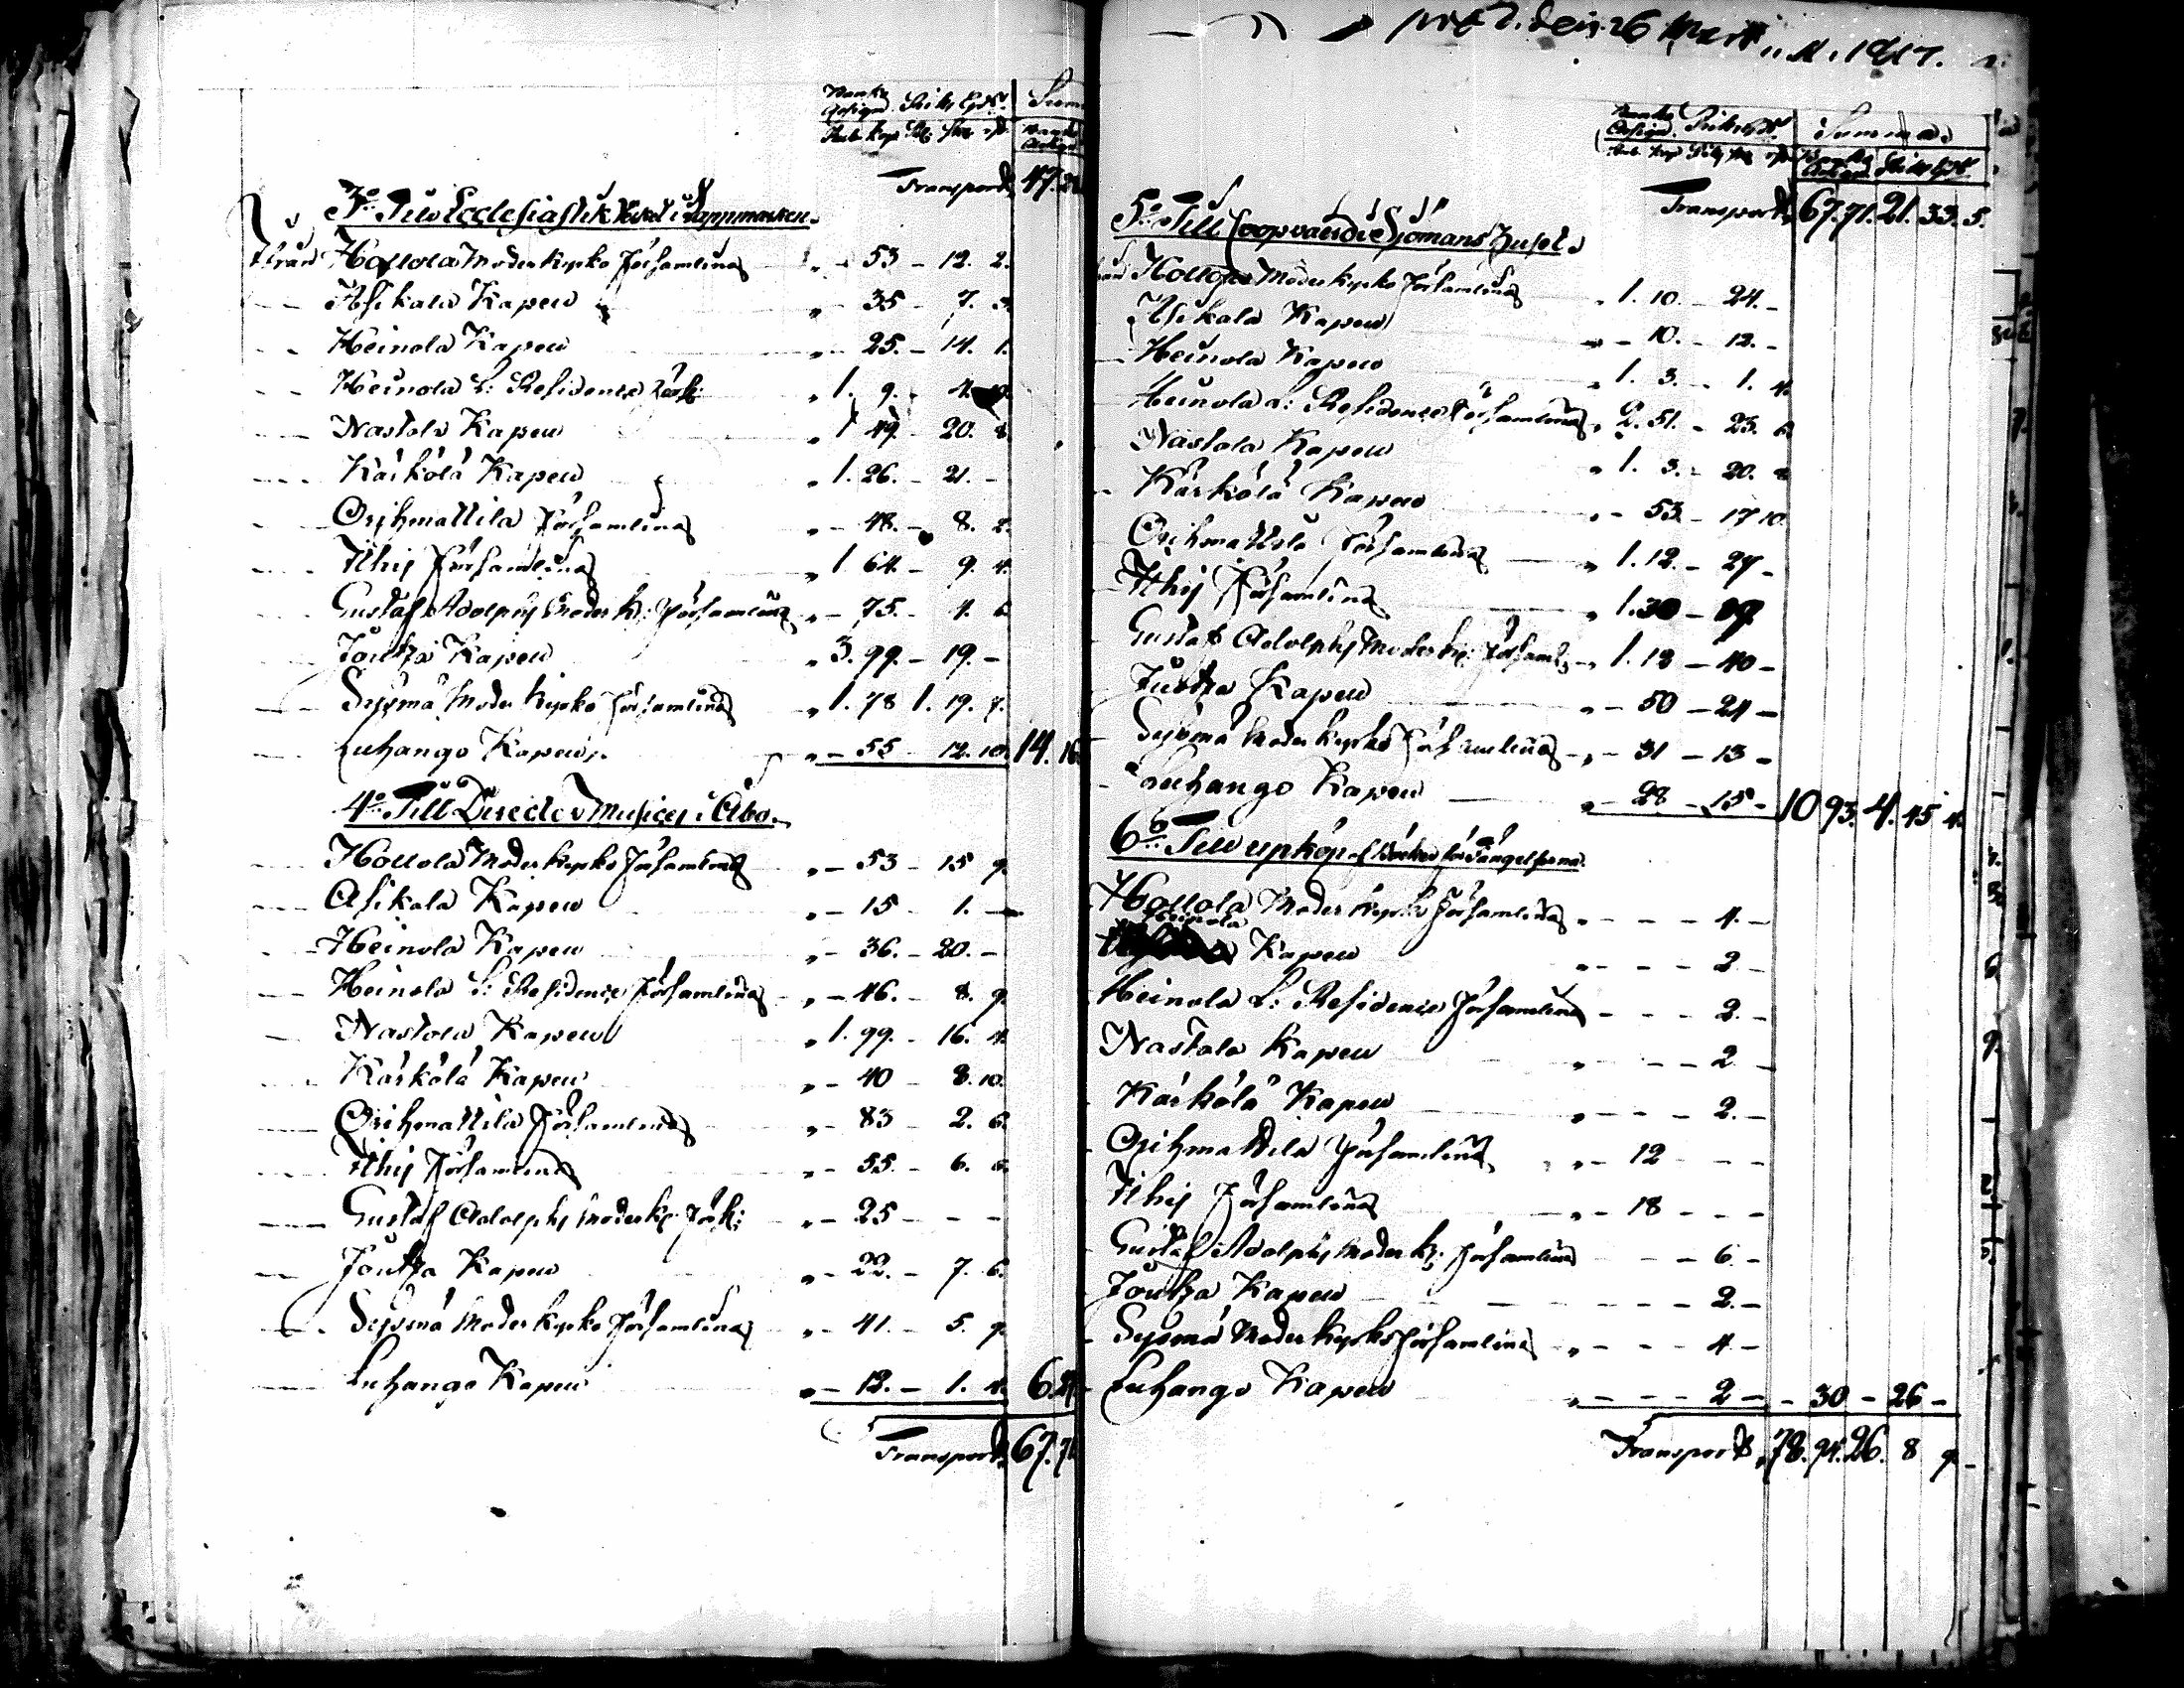 Banko Assign. Riks Gds. Sum
Rub. Kop. Rdr. Sk. rst. Banko Assign
Transport 47.
3:o Till Ecclesiastik Verket i Lappmarken.
från Hollola Moderkyrko Församling " - 53 - 12. 2.
Asikala Kapell " - 35 - 7.
Heinola Kapell " - 25. - 14. 1.
Heinola L: Residence Förs: " 1. 9. - 4.
Nastola Kapell " 1 49. - 20. 8.
Kärkölä Kapell " 1. 26. - 21. -
Orihmattila Församling " - 48. - 8. 2.
Ithis Församling " 1 64. - 9. 4.
Gustaf Adolphs Moderk: Församling " - 75. - 4. 6
Joutza Kapell " 3. 99. - 19. -
Sysmä Moder kyrko Församling " 1. 78 1. 19. 7.
Luhango Kapell. " - 55 - 12. 10. 14. 16
4:o Till Director Musices i Åbo.
Hollola Moderkyrko Församling " - 53 - 15 9.
Asikala Kapell " - 15 - 1. -
Heinola Kapell " - 36. - 20. -
Heinola L: Residence Församling " - 46. - 8. 9.
Nastola Kapell " 1. 99. - 16. 4.
Kärkölä Kapell " - 40 - 8. 10.
Orihmattila Församling " - 83 - 2. 6.
Ithis Församling " - 55. - 6. 6.
Gustaf Adolphs Moderk: Förs: " - 25 - - -
Joutza Kapell " - 22. - 7. 6.
Sysmä Moder kyrko Församling " - 41. - 5. 9.
Luhango Kapell " - 12. - 1. 4. 6.
Transport 67. 71
den 26 Martii 1817.
Banko Assign. Riks Gds. Summa
Rub. Kop. Rdr. Sk. rst. Banko Assign. Riks Gds
Transport 67. 71. 21. 33. 5.
5:o Till Coopvaerdie Sjömans Huset.
från Hollola Moderkyrko Församling " 1. 10. - 24. -
Asikala Kapell " - 10. - 12. -
Heinola Kapell " 1. 3. - 1. 4.
Heinola L: Residence Församling " 2. 51. - 23. 6.
Nastola Kapell " 1. 3. - 20. 8
Kärkölä Kapell " - 53. - 17 10.
Orihmattila Församling " 1. 12. - 27 -
Ithis Församling " 1. 30 -
Gustaf Adolphs Moderky: Församl: " 1. 18 - 40 -
Joutza Kapell " - 50 - 24 -
Sysmä Moder kyrko Församling " - 31 - 13 -
Luhango Kapell " - 28 - 15 - 10 93. 4. 45 4.
6:o Till upköp af Böcker för Fångelserna.
Hollola Moder kyrko Församling " - - - 4. -
Heinola
Kapell " - - - 2 -
Heinola L: Residence Församling - - - 2. -
Nastola Kapell " - - - 2 -
Kärkölä Kapell " - - - 2. -
Orihmattila Församling " - 12 - - -
Ithis Församling " - 18 - - -
Gustaf Adolphs Moderk: Församling - - 6 -
Joutza Kapell - - - 2. -
Sysmä Moder Kyrko Församling " - - - 4 -
Luhango Kapell " - - - 2 - - 30 - 26 -
Transport 78. 94. 26. 8 9. -